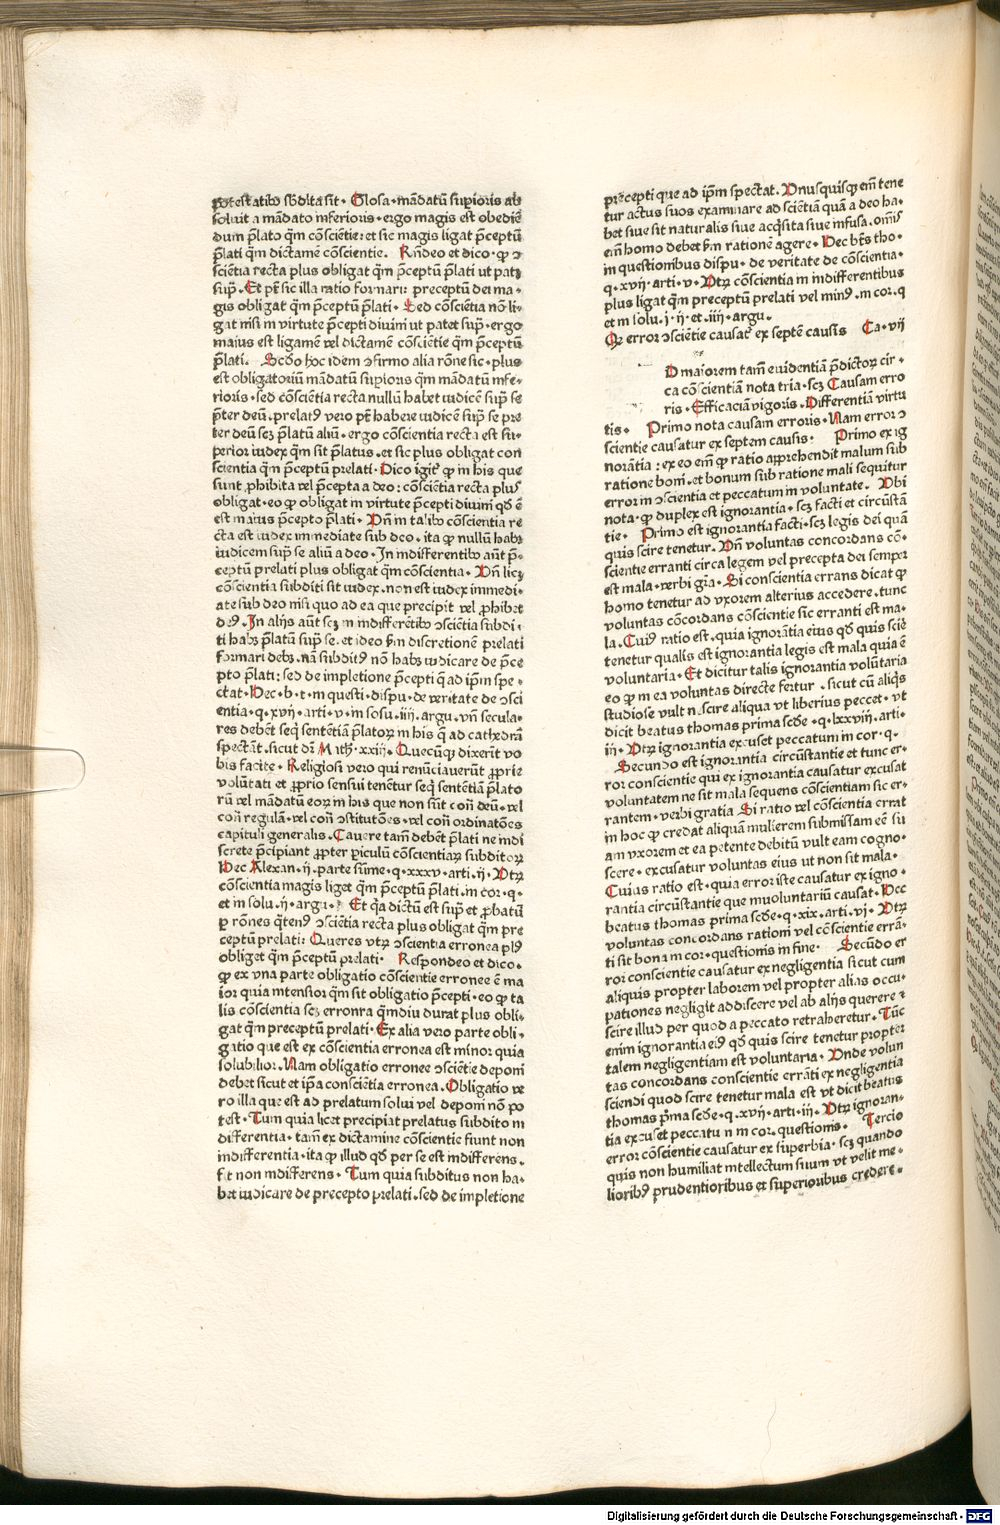 potestatibꝰ sb̄dita sit. Glosa. mādatū supioris ab
soluit a mādato inferioris. ergo magis est obediē
dum p̄lato q̄m cōscientie: et sic magis ligat p̄ceptū
p̄lati q̄m dictamē conscientie. Rn̄deo et dico. ꝙ ↄ
sciētia recta plus obligat q̄m p̄ceptū p̄lati ut patꝫ
sup̄. Et pt̄ sic illa ratio formari: preceptū dei ma-
gis obligat q̄m p̄ceptū p̄lati. Sed cōsciētia nō li-
gat nisi in virtute p̄cepti diuini ut patet sup̄. ergo
maius est ligamē vel dictamē cōsciētie q̄m p̄ceptū
p̄lati. Scd̄o hoc idem ↄfirmo alia rōne sic. plus
est obligatoriū mādatū supioris q̄m mādatū infe-
rioris. sed cōsciētia recta nullū habet iudicē sup̄ se
p̄ter deū. prelatꝰ vero pt̄ habere iudicē sup̄ se pre
ter deū scꝫ p̄latū aliū. ergo cōscientia recta est su-
perior iudex q̄m sit p̄latus. et sic plus obligat con
scientia q̄m p̄ceptū prelati. Dico igit̄ ꝙ in his que
sunt ꝓhibita vel p̄cepta a deo: cōscientia recta plus
obligat. eo ꝙ obligat in virtute p̄cepti diuini qd̄ ē
est maius p̄cepto p̄lati. Vn̄ in talibꝰ cōscientia re
cta est iudex immediate sub deo. ita ꝙ nullū habꝫ
iudicem sup̄ se aliū a deo. In indifferentibꝰ aūt p̄-
ceptū prelati plus obligat q̄m cōscientia. Vn̄ licꝫ
cōscientia subditi sit iudex. non est iudex immedi-
ate sub deo nisi quo ad ea que precipit vel ꝓhibet
deꝰ. In alijs aūt scꝫ in indifferētibꝰ ↄsciētia subdi-
ti habꝫ p̄latū sup̄ se. et ideo sm̄ discretionē prelati
formari debꝫ. nā subditꝰ nō habꝫ iudicare de p̄ce
pto p̄lati: sed de impletione p̄cepti q̄ ad ip̄m spe-
ctat. Hec. b. t. in questi. dispu. de veritate de ↄsci
entia. q. xvij. arti. v. in solu. iiij. argu. vn̄ secula-
res debēt seq̄ sentētiā p̄latoꝝ in his q̄ ad cathedrā
spectāt. sicut dr̄ Math. xxiij. Quecūqꝫ dixerīt vo
bis facite. Religiosi vero qui renūciauerūt ꝓprie
volūtati et ꝓprio sensui tenētur seq̄ sentētiā p̄lato
rū vel mādatū eoꝝ in his que non sūt con̄ deū. vel
con̄ regulā. vel con̄ ↄstitutōes. vel con̄ ordinatōes
capituli generalis. Cauere tam̄ debēt p̄lati ne indi
screte p̄cipiant ꝓpter piculū cōscientiaꝝ subditoꝝ
Hec Alexan. ij. parte sūme. q. xxxv. arti. ij. Vtꝝ
cōscientia magis liget q̄m p̄ceptū p̄lati. in cor. q.
et in solu. ij. argu. Et q̄a dictū est sup̄ et ꝓbatū
ꝑ rōnes q̄tenꝰ ↄsciētia recta plus obligat q̄m pre
ceptū prelati: Queres vtꝝ ↄscientia erronea plꝰ
obliget q̄m p̄ceptū prelati. Respondeo et dico.
ꝙ ex vna parte obligatio cōscientie erronee ē ma
ior quia intensior q̄m sit obligatio p̄cepti. eo ꝙ ta
lis cōscientia scꝫ erronea q̄mdiu durat plus obli-
gat q̄m preceptū prelati. Ex alia vero parte obli-
gatio que est ex cōscientia erronea est minor quia
solubilior. Nam obligatio erronee ↄsciētie deponi
debet sicut et ip̄a consciētia erronea. Obligatio ve
ro illa que est ad prelatum solui vel deponi nō po
test. Tum quia licet precipiat prelatus subdito in
differentia. tam̄ ex dictamine cōscientie fiunt non
indifferentia. ita ꝙ illud qd̄ per se est indifferens.
fit non indifferens. Tum quia subditus non ha-
bet iudicare de precepto prelati. sed de impletione
precepti que ad ip̄m spectat. Vnusquisqꝫ em̄ tene
tur actus suos examinare ad sciētiā quā a deo ha-
bet siue sit naturalis siue acq̄sita siue infusa. omīs
em̄ homo debet sm̄ rationē agere. Hec bt̄s tho.
in questionibus dispu. de veritate de cōscientia.
q. xvij. arti. v. Vtꝝ cōscientia in indifferentibus
plus ligat q̄m preceptū prelati vel minꝰ. in cor. q
et in solu. j. ij. et. iiij. argu.
Qꝙ error ↄsciētie causat̄ ex septē causis Ca. vij
D maiorem tam̄ euidentiā p̄dictoꝝ cir-
ca cōscientiā nota tria. scꝫ Causam erro
ris. Efficaciā vigoris. Differentiā virtu
tis. Primo nota causam erroris. Nam error ↄ
scientie causatur ex septem causis. Primo ex ig
norātia: ex eo em̄ ꝙ ratio apprehendit malum sub
ratione boni. et bonum sub ratione mali sequitur
error in ↄscientia et peccatum in voluntate. Vbi
nota. ꝙ duplex est ignorantia. scꝫ facti et circūstā
tie. Primo est ignorantia facti. scꝫ legis dei quā
quis scire tenetur. Vn̄ voluntas concordans cō-
scientie erranti circa legem vel precepta dei semper
est mala. verbi gr̄a. Si conscientia errans dicat ꝙ
homo tenetur ad vxorem alterius accedere. tunc
voluntas cōcordans cōscientie sic erranti est ma-
la. Cuiꝰ ratio est. quia ignorātia eius qd̄ quis scīē
tenetur qualis est ignorantia legis est mala quia ē
voluntaria. Et dicitur talis ignorantia volūtaria
eo ꝙ in ea voluntas directe fertur. sicut cū aliq̄s
studiose vult nescire aliqua vt liberius peccet. vt
dicit beatus thomas prima scd̄e. q. lxxviij. arti.
iij. Vtꝝ ignorantia excuset peccatum in cor. q.
Secundo est ignorantia circūstantie et tunc er-
ror conscientie qui ex ignorantia causatur excusat
voluntatem ne sit mala sequens cōscientiam sic er-
rantem. verbi gratia Si ratio vel cōscientia errat
in hoc ꝙ credat aliquā mulierem submissam eē su
am vxorem et ea petente debitū vult eam cogno-
scere. excusatur voluntas eius ut non sit mala.
Cuius ratio est. quia error iste causatur ex igno-
rantia circūstantie que inuoluntariū causat. Hec
beatus thomas prima scd̄e. q. xix. arti. vj. Vtꝝ
voluntas concordans rationi vel cōscientie errā-
ti sit bona in cor. questionis in fine. Secūdo er
ror conscientie causatur ex negligentia sicut cum
aliquis propter laborem vel propter alias occu-
pationes negligit addiscere vel ab alijs querere ⁊
scire illud per quod a peccato retraheretur. Tūc
enim ignorantia eiꝰ qd̄ quis scire tenetur propter
talem negligentiam est voluntaria. Vnde volun
tas concordans conscientie errāti ex negligentia
sciendi quod scire tenetur mala est vt dicit beatus
thomas p̄ma scd̄e. q. xvij. arti. iij. Vtꝝ ignoran-
tia excuset peccatum in cor. questionis. Tercio
error cōscientie causatur ex superbia. scꝫ quando
quis non humiliat intellectum suum vt velit me-
lioribꝰ prudentioribus et superioribus credere.
Digitalisierung gefördert durch die Deutsche Forschungsgemeinschaft - DFG